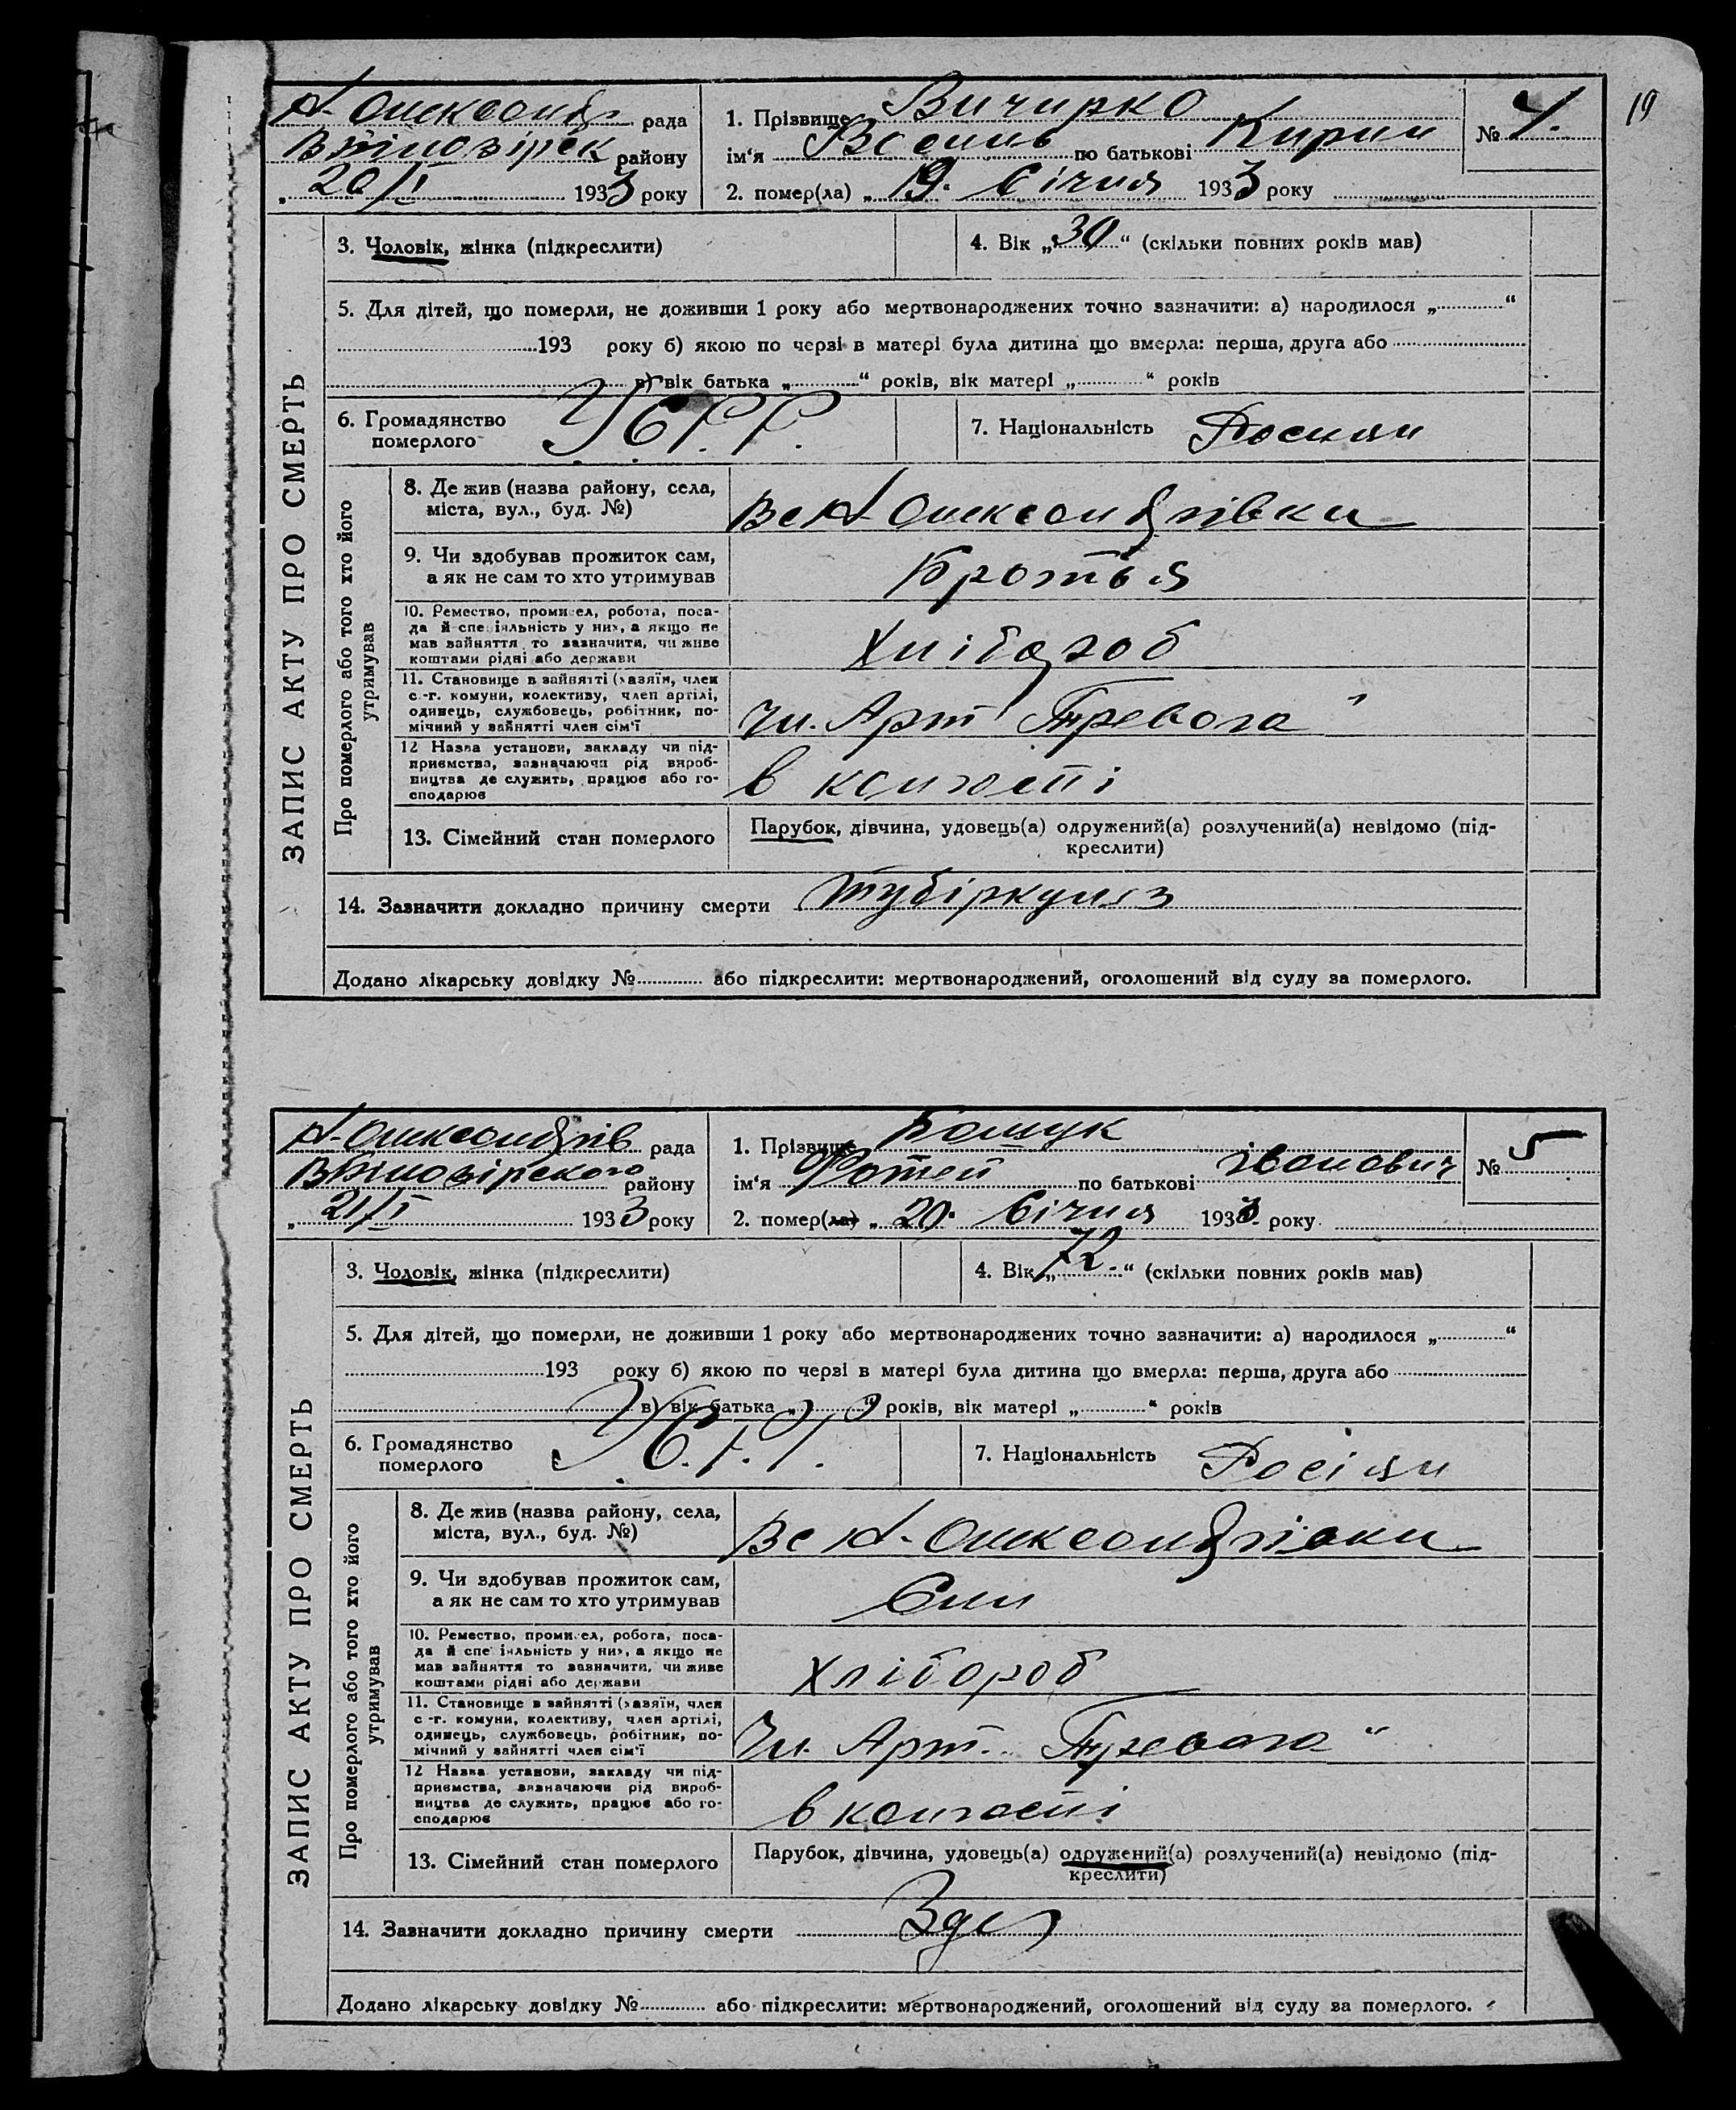 19
А-Олександр рада
В Білозірск району
„ 20/I 1933 року
1. Прізвище Вичирко
ім'я Василь по батькові Кирил
№ 4.
2. помер(ла) „ 19. Січня 1933 року
ЗАПИС АКТУ ПРО СМЕРТЬ
3. Чоловік, жінка (підкреслити)
4. Вік „ 30 “ (скільки повних років мав)
5. Для дітей, що померли, не доживши 1 року або мертвонароджених точно зазначити: а) народилося „ “
193 року б) якою по черзі в матері була дитина що вмерла: перша, друга або
в) вік батька „ “ років, вік матері „ “ років
6. Громадянство
померлого
УСРР.
7. Національність Росиян
Про померлого або того хто його
утримував
8. Де жив (назва району, села,
міста, вул., буд. №)
В с А-Олександрівки
9. Чи здобував прожиток сам,
а як не сам то хто утримував
Братья
10. Ремество, промисел, робота, поса-
да й спеціяльність у них, а якщо не
мав зайняття то зазначити, чи живе
коштами рідні або держави
Хлібороб
11. Становище в зайнятті (хазяїн, член
с.-г. комуни, колективу, член артілі,
одинець, службовець, робітник, по-
мічний у зайнятті член сім'ї
Чл. Арт Тревога "
12 Назва установи, закладу чи під-
приємства, зазначаючи рід вироб-
ництва де служить, працює або го-
сподарює
в колгоспі
13. Сімейний стан померлого
Парубок, дівчина, удовець(а) одружений(а) розлучений(а) невідомо (під-
креслити)
14. Зазначити докладно причину смерти тубіркульз
Додано лікарську довідку № або підкреслити: мертвонароджений, оголошений від суду за померлого.
А-Олександрів рада
В Білозірского району
„ 21/I 1933 року
1. Прізвище Бащук
ім'я Фотей по батькові іванович
№ 5
2. помер(ла) „ 20. Січня 1933 року
ЗАПИС АКТУ ПРО СМЕРТЬ
3. Чоловік, жінка (підкреслити)
4. Вік „ 72. “ (скільки повних років мав)
5. Для дітей, що померли, не доживши 1 року або мертвонароджених точно зазначити: а) народилося „ “
193 року б) якою по черзі в матері була дитина що вмерла: перша, друга або
в) вік батька „ “ років, вік матері „ “ років
6. Громадянство
померлого
У.С.Р.Р.
7. Національність Росіян
Про померлого або того хто його
утримував
8. Де жив (назва району, села,
міста, вул., буд. №)
В с А-Олександрівки
9. Чи здобував прожиток сам,
а як не сам то хто утримував
Син
10. Ремество, промисел, робота, поса-
да й спеціяльність у них, а якщо не
мав зайняття то зазначити, чи живе
коштами рідні або держави
Хлібороб
11. Становище в зайнятті (хазяїн, член
с.-г. комуни, колективу, член артілі,
одинець, службовець, робітник, по-
мічний у зайнятті член сім'ї
Чл. Арт. Тревога "
12 Назва установи, закладу чи під-
приємства, зазначаючи рід вироб-
ництва де служить, працює або го-
сподарює
в колгоспі
13. Сімейний стан померлого
Парубок, дівчина, удовець(а) одружений(а) розлучений(а) невідомо (під-
креслити)
14. Зазначити докладно причину смерти
Додано лікарську довідку № або підкреслити: мертвонароджений, оголошений від суду за померлого.